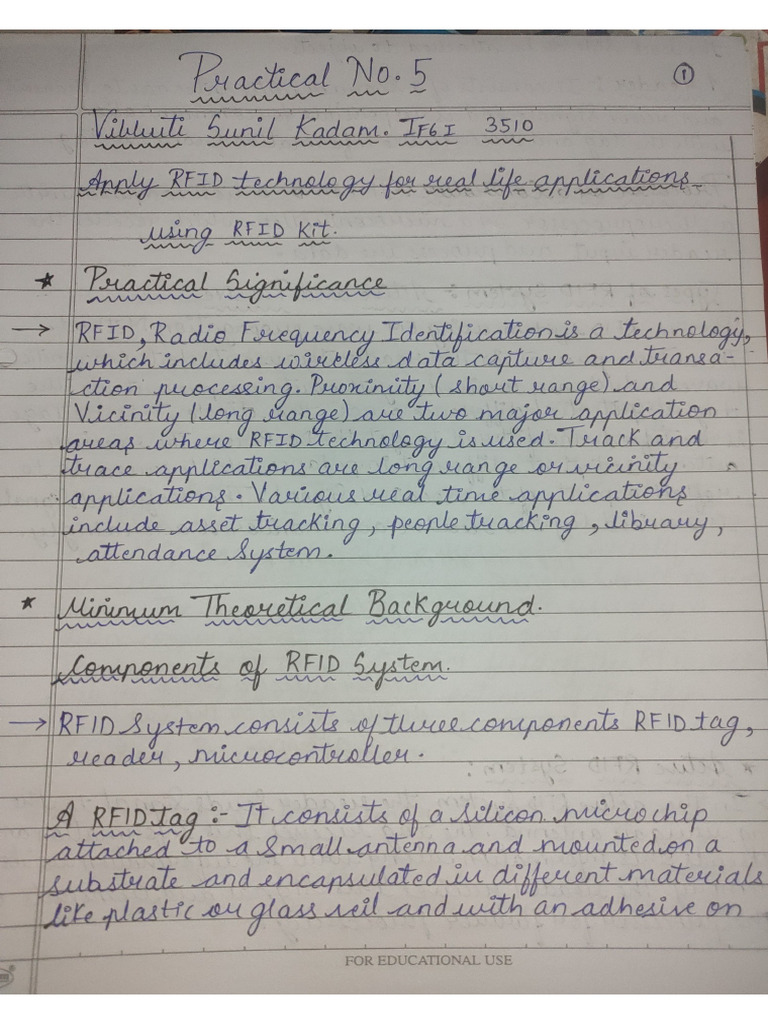 Practical No. 5
1
Vibhuti Sunil Kadam. IF6I 3510
Apply RFID technology for real life applications
using RFID Kit.
* Practical Significance
→ RFID, Radio Frequency Identification is a technology,
which includes wireless data capture and transa-
ction processing. Proxinity (short range) and
Vicinity (long range) are two major application
areas where RFID technology is used. Track and
trace applications are long range or vicinity
applications. Various real time applications
include asset tracking, people tracking, library,
attendance system.
* Minimum Theoretical Background.
Components of RFID System.
→ RFID System consists of three components RFID tag,
reader, microcontroller.
A RFID tag :- It consists of a silicon microchip
attached to a small antenna and mounted on a
substrate and encapsulated in different materials
like plastic or glass veil and with an adhesive on
FOR EDUCATIONAL USE